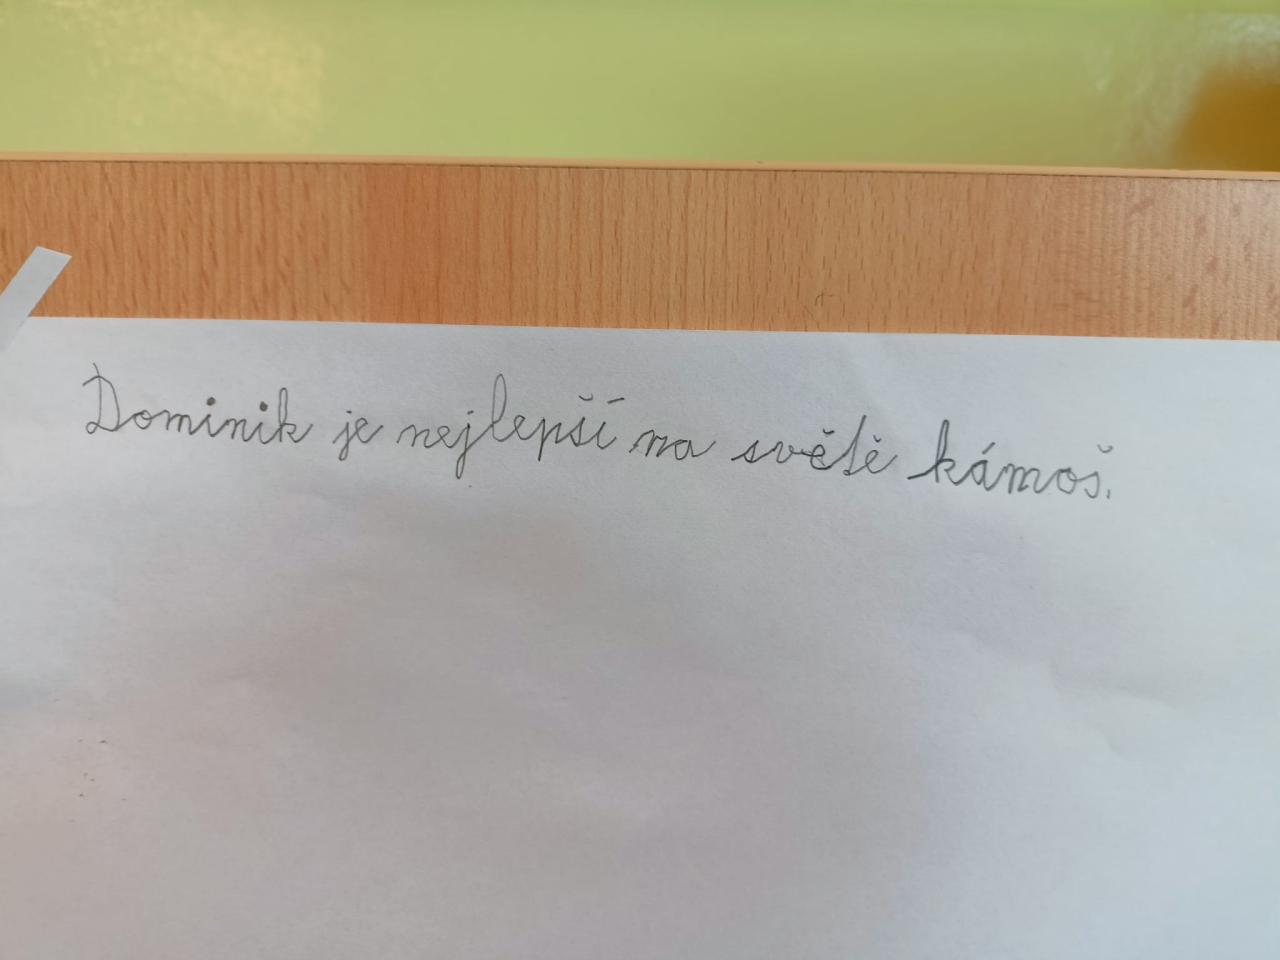 Dominik je nejlepší na světě kámoš.